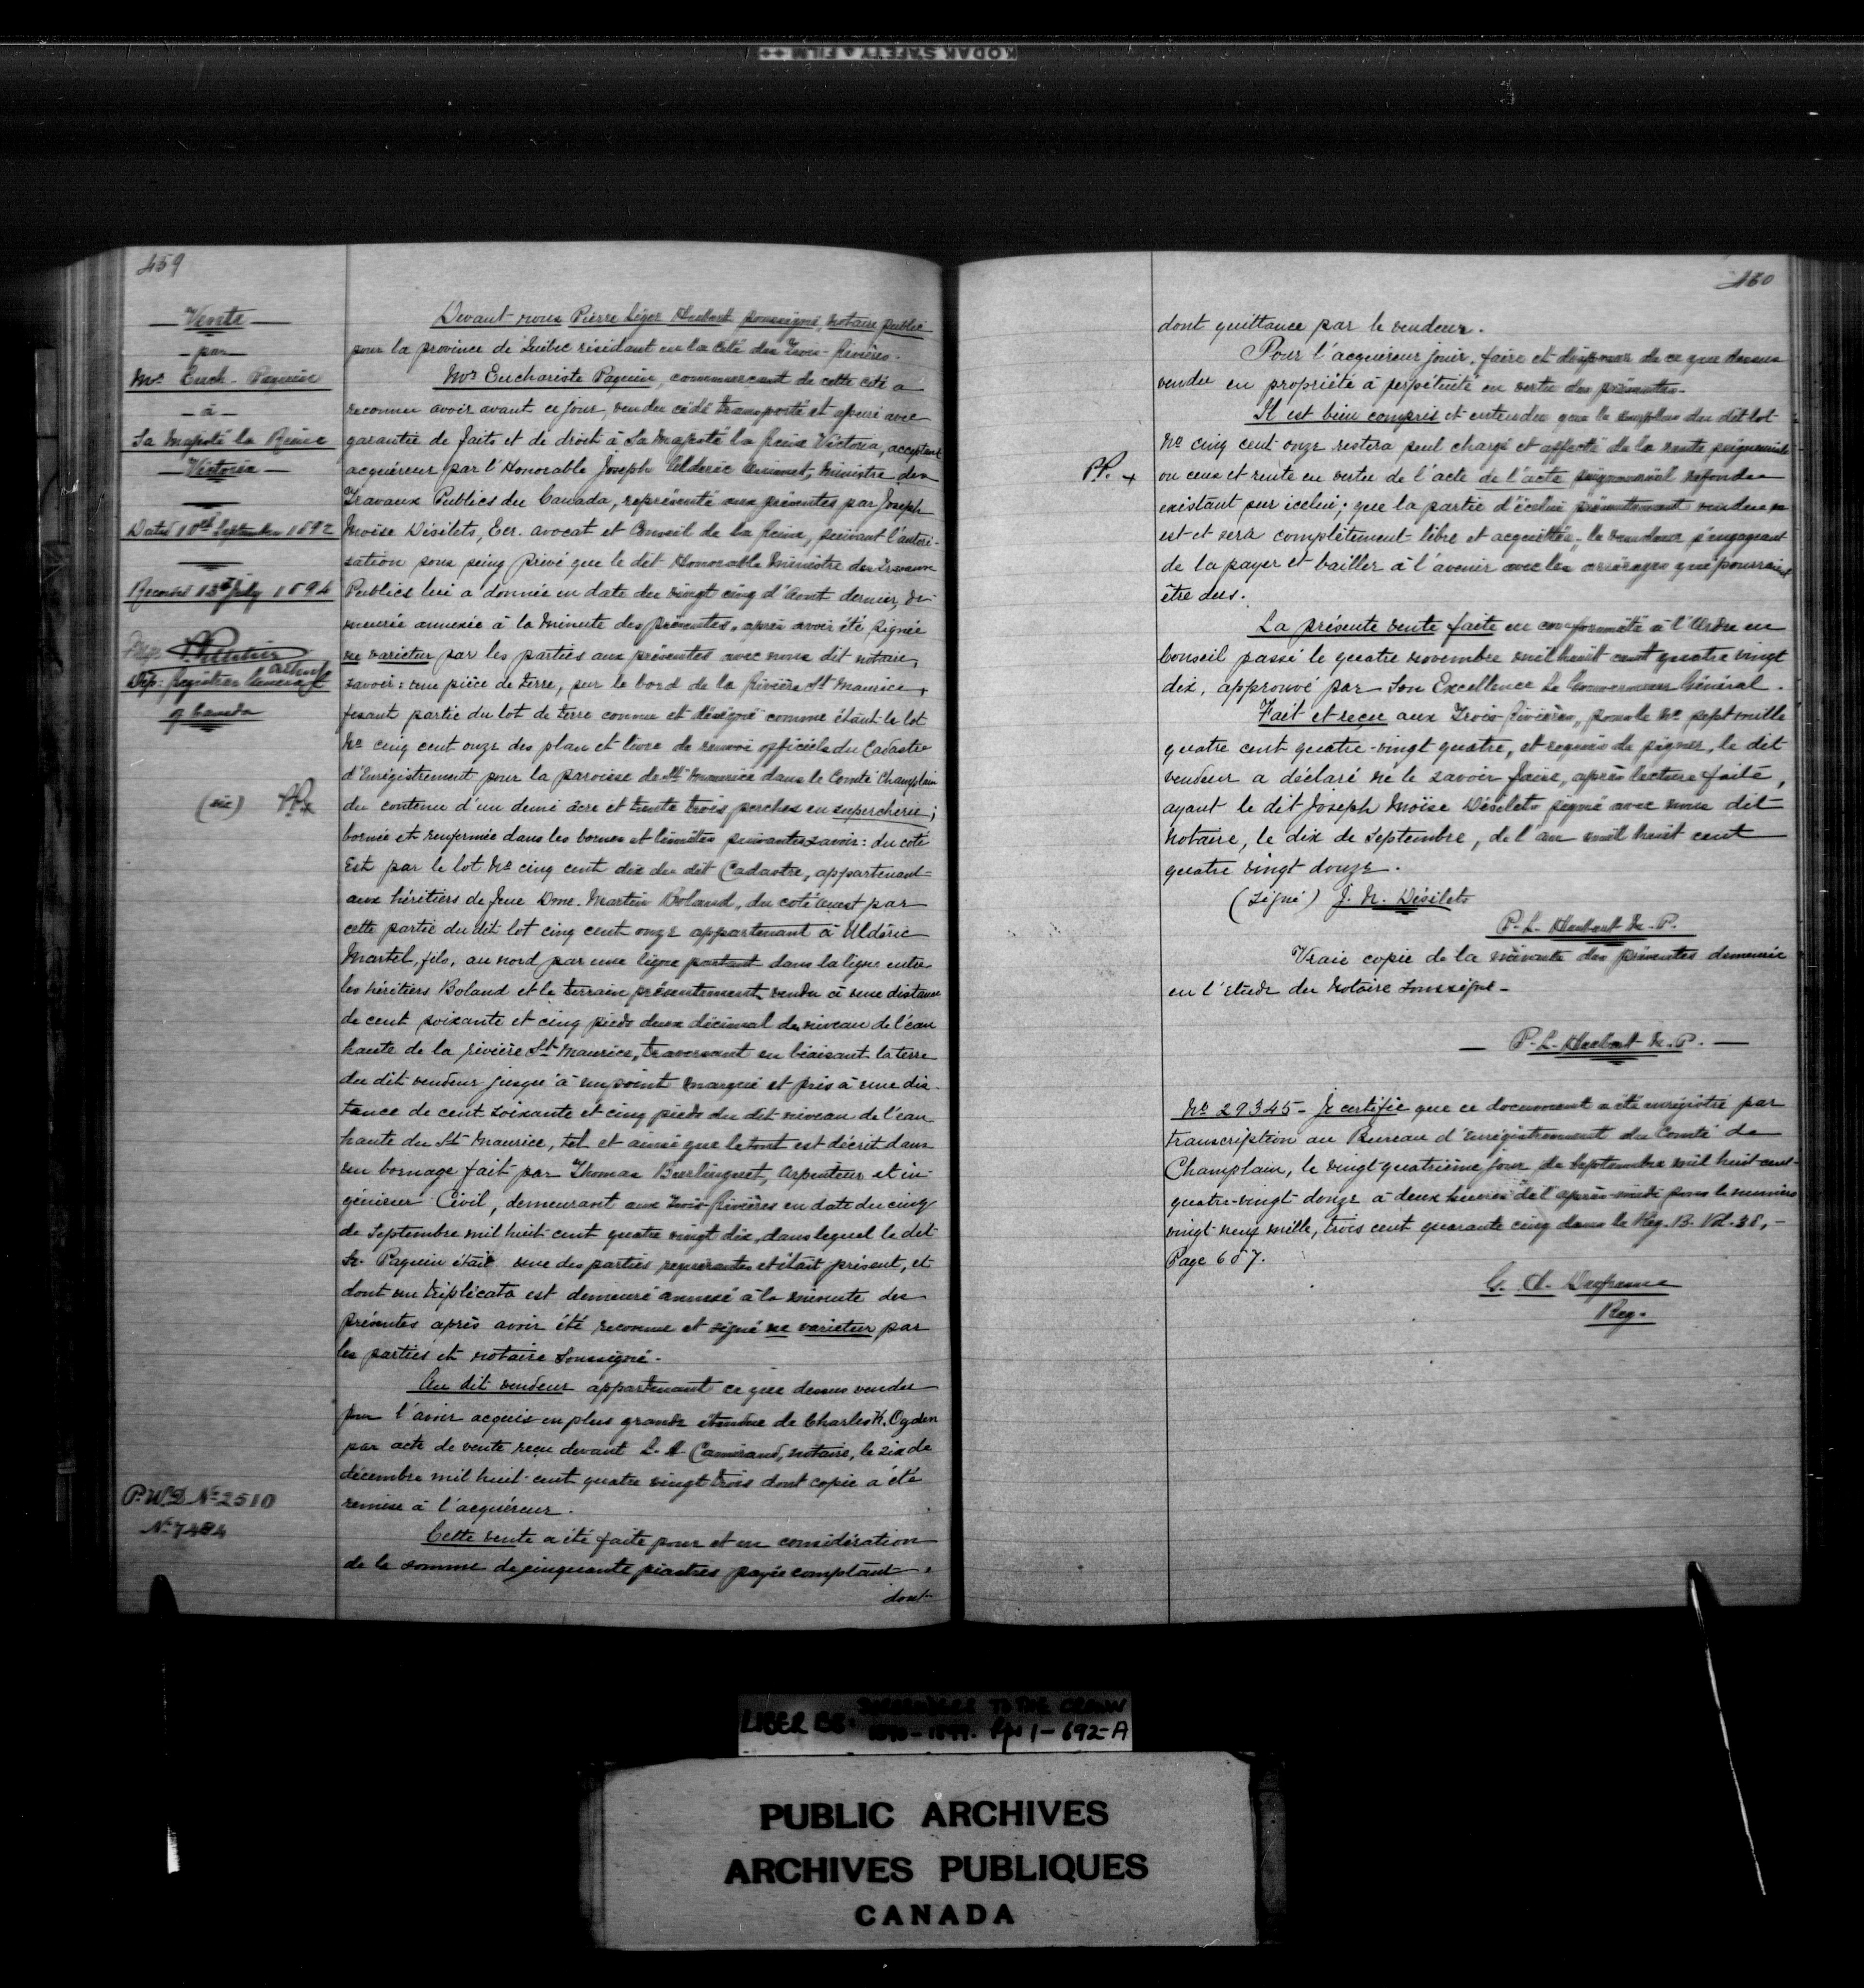 KODAK SAFETY FILM
459
Vente
par
Mr. Euch. Paquin
à
Sa Majesté la Reine
Victoria
Dated 10th September 1892
Recorded 13th July 1894
Dep. Registrar General
of Canada
(sic) PP. x
P.W.D. No 2510
No 7484
Devant nous Pierre Léger Hubert soussigné, notaire public
pour la province de Québec résidant en la cité des Trois-Rivières.
Mr Euchariste Paquin, commerçant de cette cité a
reconnu avoir avant ce jour, vendu cédé transporté et avec
garantie de faits et de droit à Sa Majesté la Reine Victoria, acceptant
acquéreur par l'Honorable Joseph Aldéric Ouimet, Ministre des
Travaux Publics du Canada, représenté aux présentes par Joseph
Moïse Désilets, Ecr. avocat et Conseil de la Reine, suivant l'autori-
sation sous seing privé que le dit Honorable Ministre des Travaux
Publics lui a donnée en date du vingt cinq d'Aout dernier, de-
meurée annexée à la minute des présentes, après avoir été signée
ne varietur par les parties aux présentes avec nous dit notaire,
savoir: une pièce de terre, sur le bord de la Rivière St Maurice,
fesant partie du lot de terre connu et désigné comme étant le lot
No cinq cent onze des plan et livre de renvoi officiels du Cadastre
d'Enrégistrement pour la paroisse de St Maurice dans le Comté Champlain
du contenu d'un demi âcre et trente trois perches en supercherie;
bornée et renfermée dans les bornes et limites suivantes savoir: du coté
Est par le lot No cinq cent dix du dit Cadastre, appartenant
aux héritiers de feue Dme. Martin Boland, du coté ouest par
cette partie du dit lot cinq cent onze appartenant à Uldéric
Martel, fils, au nord par une ligne partant dans la ligne entre
les héritiers Boland et le terrain présentement vendu à une distance
de cent soixante et cinq pieds deux décimal du niveau de l'eau
haute de la rivière St Maurice, traversant en biaisant la terre
du dit vendeur jusqu'à un point marqué et pris à une dis-
tance de cent soixante et cinq pieds du dit niveau de l'eau
haute du St Maurice, tel et ainsi que le tout est décrit dans
un bornage fait par Thomas Burlinguet, Arpenteur et in-
génieur Civil, demeurant aux Trois-Rivières en date du cinq
de Septembre mil huit cent quatre vingt dix, dans lequel le dit
Sr. Paquin était une des parties requérantes et était présent, et
dont un triplicata est demeuré annexé à la minute des
présentes après avoir été reconnu et signé ne varietur par
les parties et notaire soussigné.
Au dit vendeur appartenant ce que dessus vendu
pour l'avoir acquis en plus grande étendue de Charles K. Ogden
par acte de vente reçu devant L. A. Camirand, notaire, le six de
décembre mil huit cent quatre vingt trois dont copie a été
remise à l'acquéreur.
Cette vente a été faite pour et en considération
de la somme de cinquante piastres payée comptant,
dont
460
dont quittance par le vendeur.
Pour l'acquéreur jouir, faire et disposer de ce que dessus
vendu en propriété à perpétuité en vertu des présentes.
Il est bien compris et entendu que le surplus du dit lot
No cinq cent onze restera seul chargé et affecté de la rente seigneuriale
PP. x
ou cens et rente en vertu de l'acte de l'acte seigneurial refondu
existant sur icelui; que la partie d'icelui présentement vendue
est et sera complètement libre et acquittée, le vendeur s'engageant
de la payer et bailler à l'avenir avec les arrérages qui pourraient
être dus.
La présente vente faite en conformité à l'Ordre en
Conseil passé le quatre novembre mil huit cent quatre vingt
dix, approuvé par Son Excellence Le Gouverneur Général.
Fait et reçu aux Trois-Rivières, sous le No sept mille
quatre cent quatre-vingt quatre, et requis de signer, le dit
vendeur a déclaré ne le savoir faire, après lecture faite,
ayant le dit Joseph Moïse Désilets signé avec nous dit
notaire, le dix de Septembre, de l'an mil huit cent
quatre vingt douze.
(Signé) J. M. Désilets
P. L. Hubert N. P.
Vraie copie de la minute des présentes demeurée
en l'étude du Notaire Soussigné.
P. L. Hubert N. P.
No 29345 - Je certifie que ce document a été enrégistré par
transcription au Bureau d'Enrégistrement du Comté de
Champlain, le vingt quatrième jour de Septembre mil huit cent
quatre-vingt douze à deux heures de l'après-midi sous le numéro
vingt neuf mille, trois cent quarante cinq dans le Reg. B. Vol. 38,
Page 607.
Reg.
LIBER BB: SURRENDERS TO THE CROWN
1890-1899. Pps 1-692-A
PUBLIC ARCHIVES
ARCHIVES PUBLIQUES
CANADA